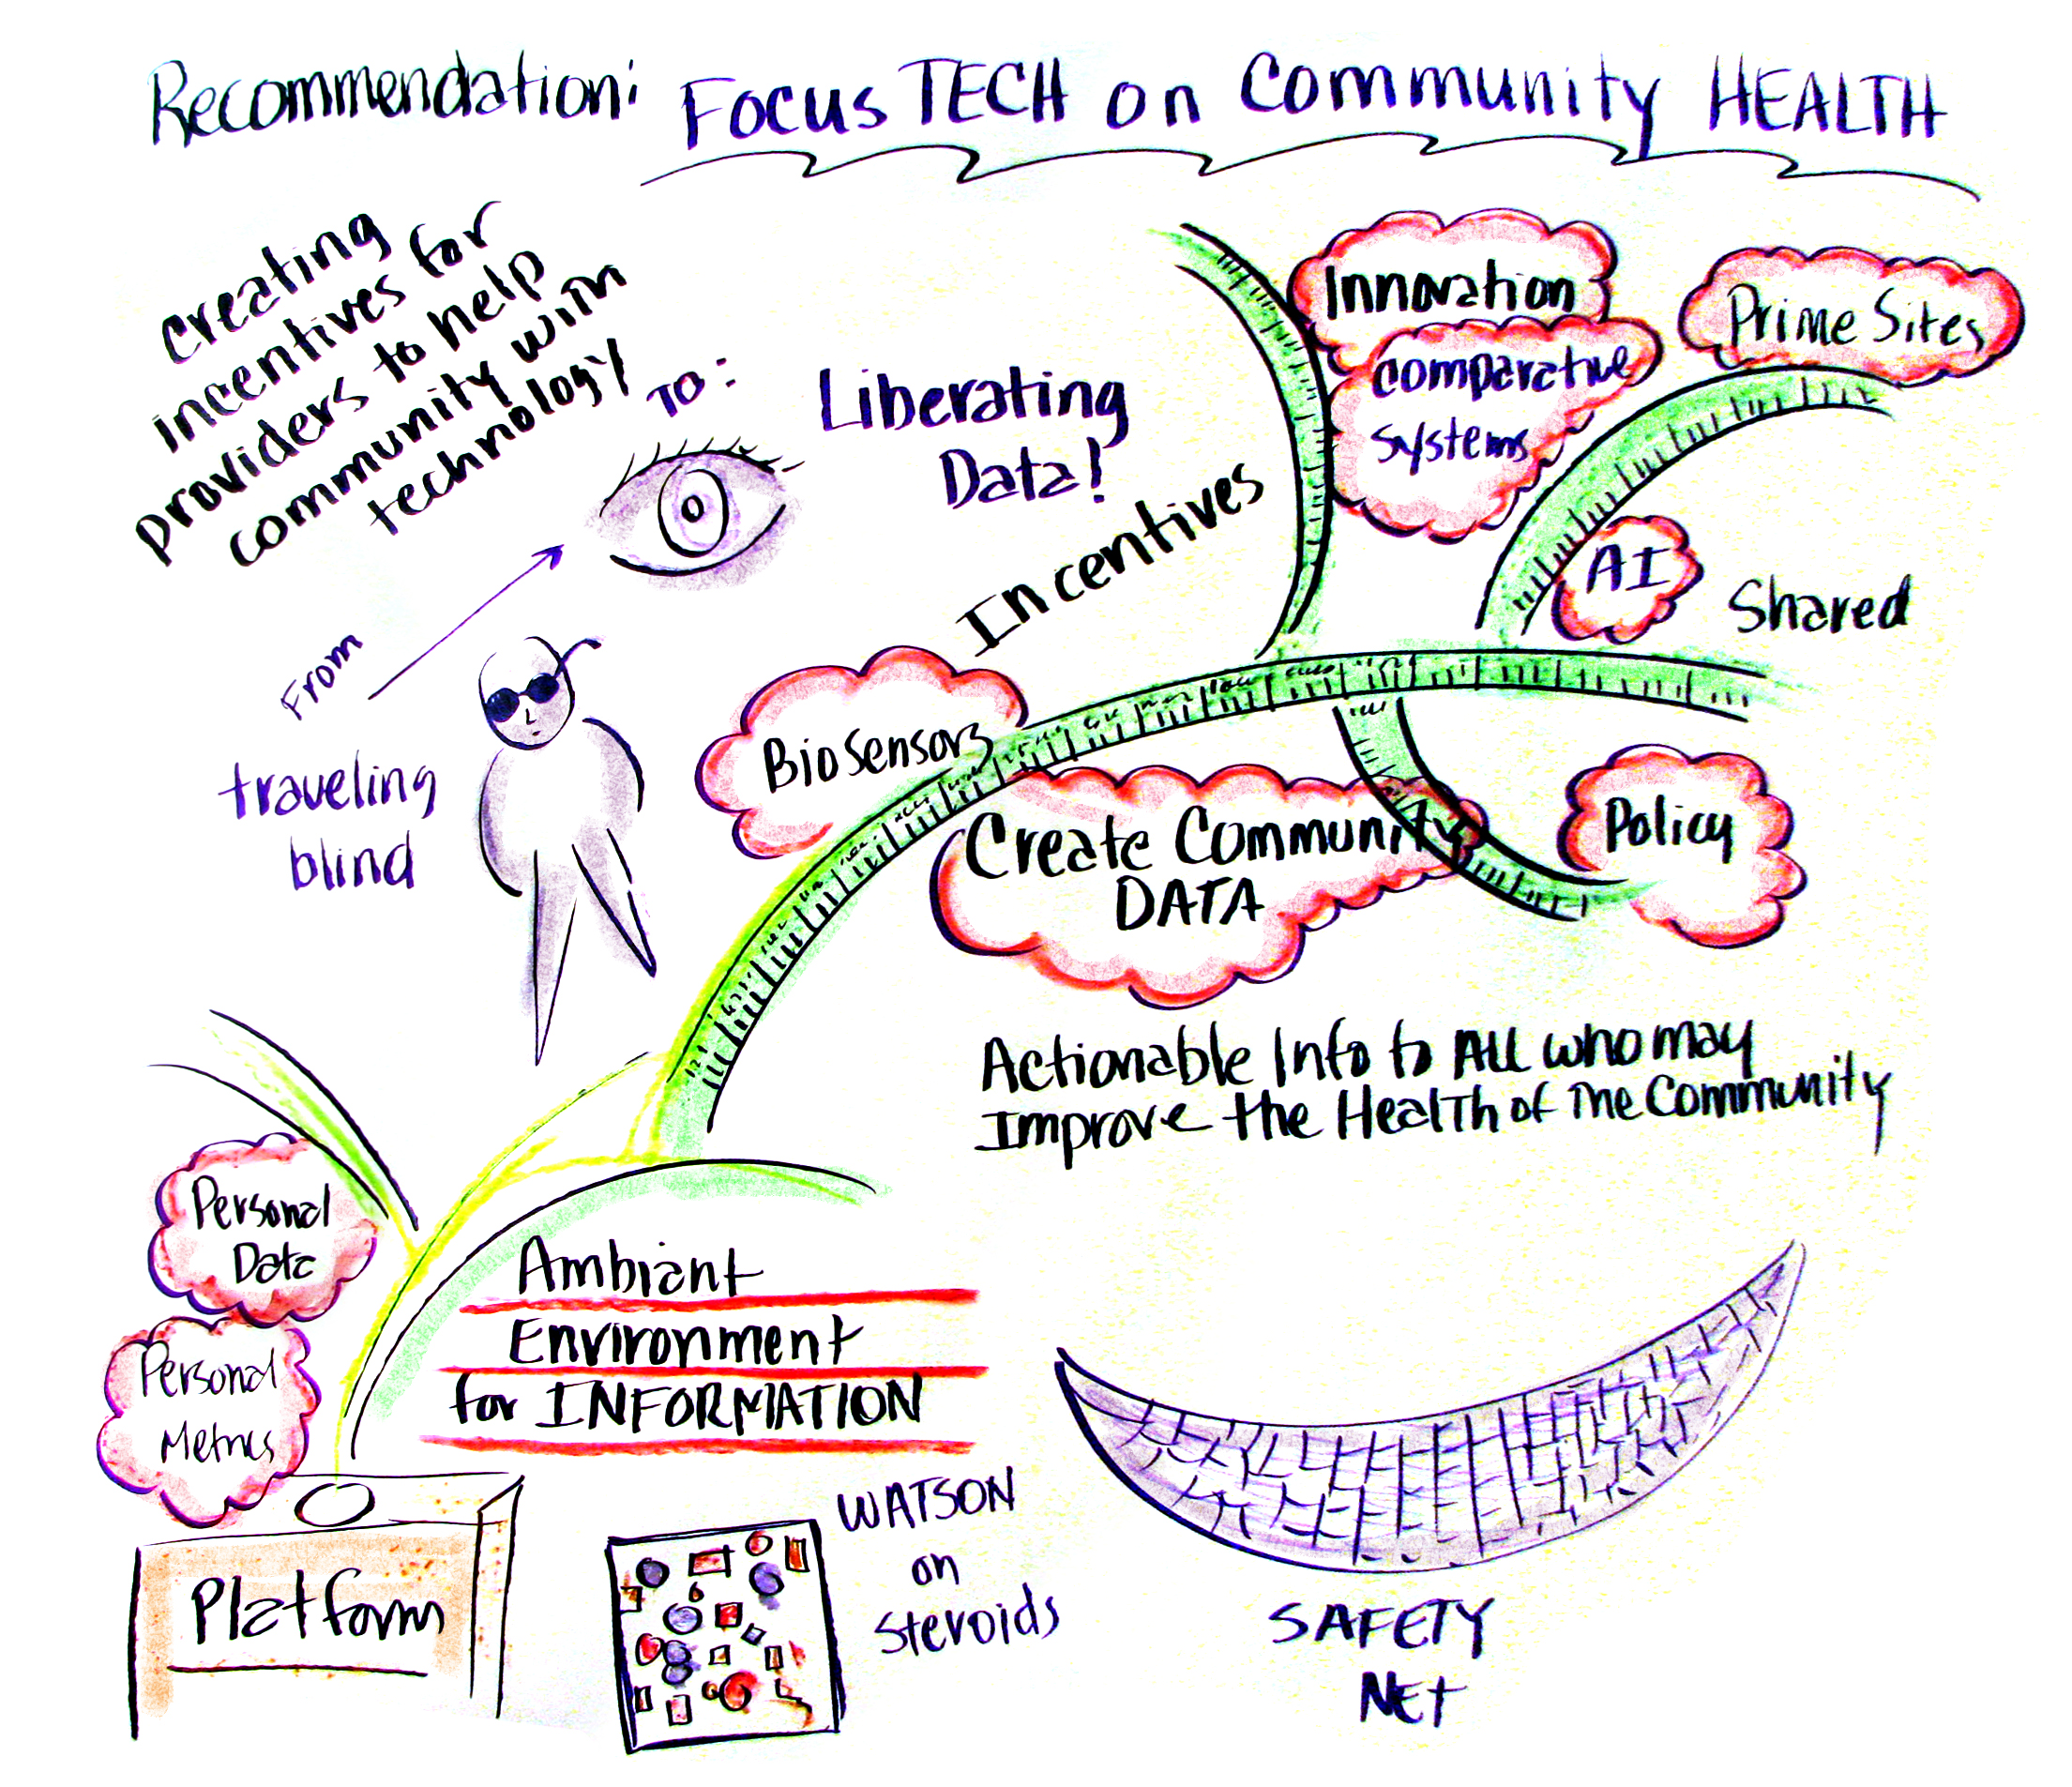 Recommendation: Focus TECH on Community HEALTH
Creating
incentives for
providers to help
community with
technology
TO:
Liberating
Data!
From
traveling
blind
Incentives
Innovation
comparative
systems
Prime Sites
AI
Shared
BioSensors
Create Community
DATA
Policy
Actionable Info to ALL who may
Improve the Health of the Community
Personal
Data
Personal
Metrics
Ambiant
Environment
for INFORMATION
Platform
WATSON
on
Steroids
SAFETY
NET